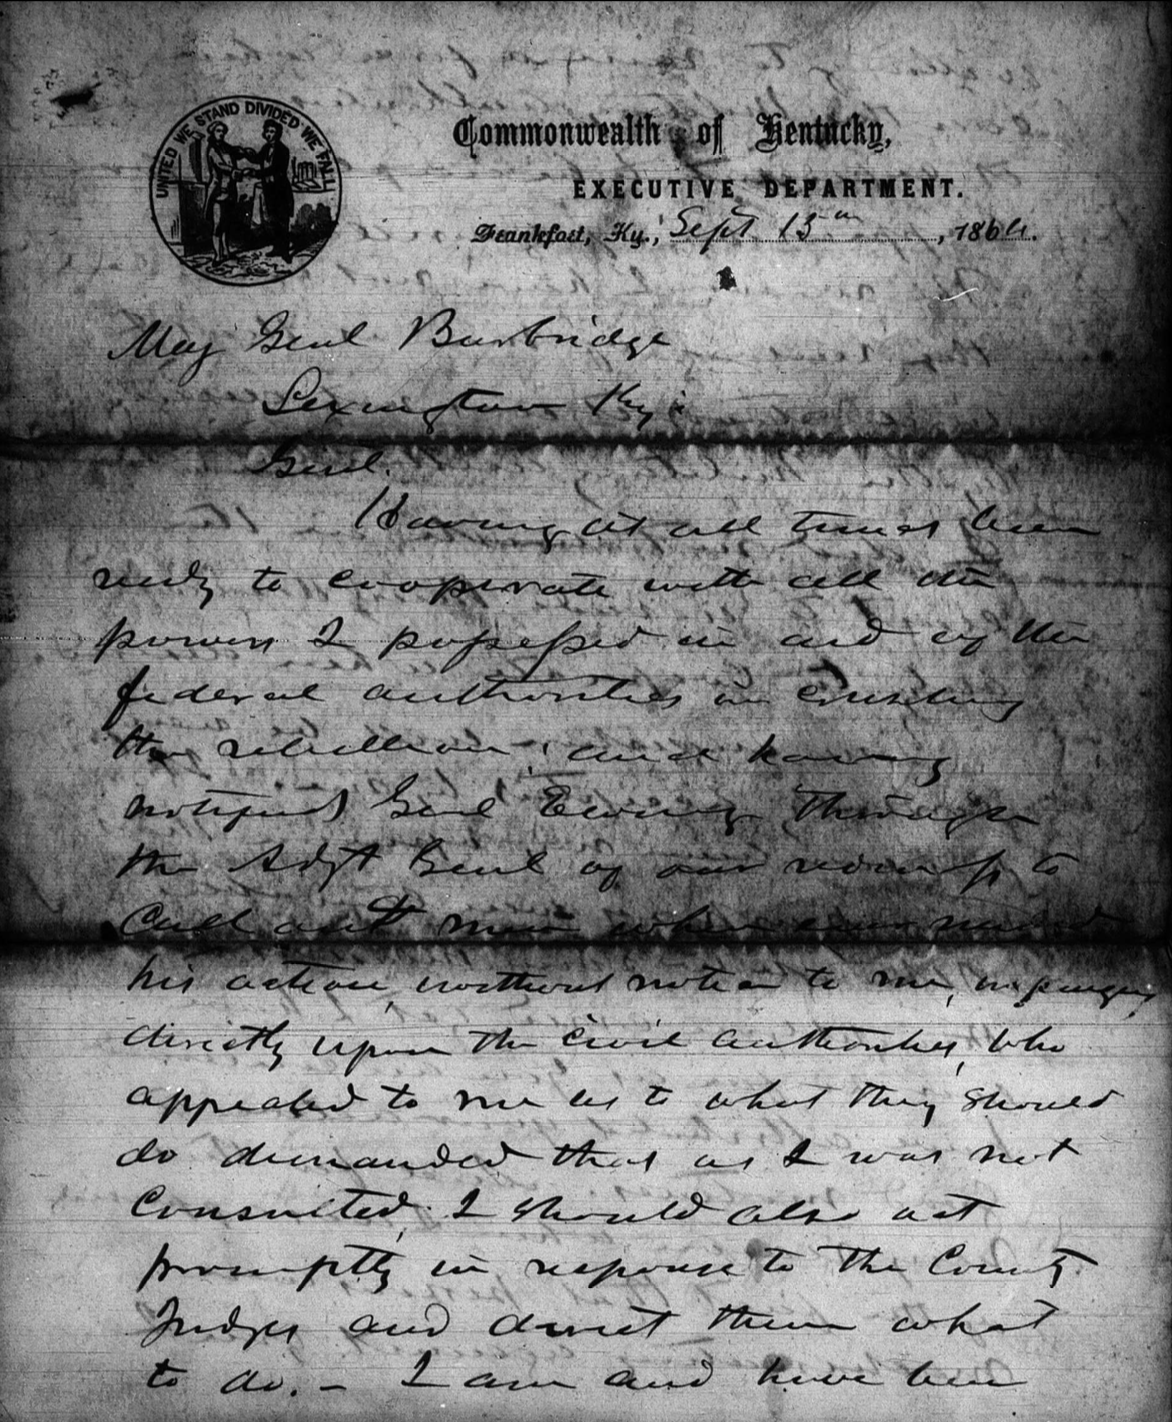 UNITED WE STAND DIVIDED WE FALL
Commonwealth of Kentucky,
EXECUTIVE DEPARTMENT.
Frankfort, Ky., Sept 15th, 1864.
Maj Genl Burbridge
Lexington Ky:
Genl.
Having at all times been
ready to cooperate with all the
powers I possessed in aid of the
federal authorities in crushing
the rebellion, and having
notified Genl Ewing through
the Adjt Genl of our readiness to
Call out men when ever needed
his action, without notice to me, impinging
directly upon the civil authorities, who
appealed to me as to what they should
do demanded that as I was not
Consulted, I should also act
promptly in response to the County
Judges and direct them what
to do. – I am and have been